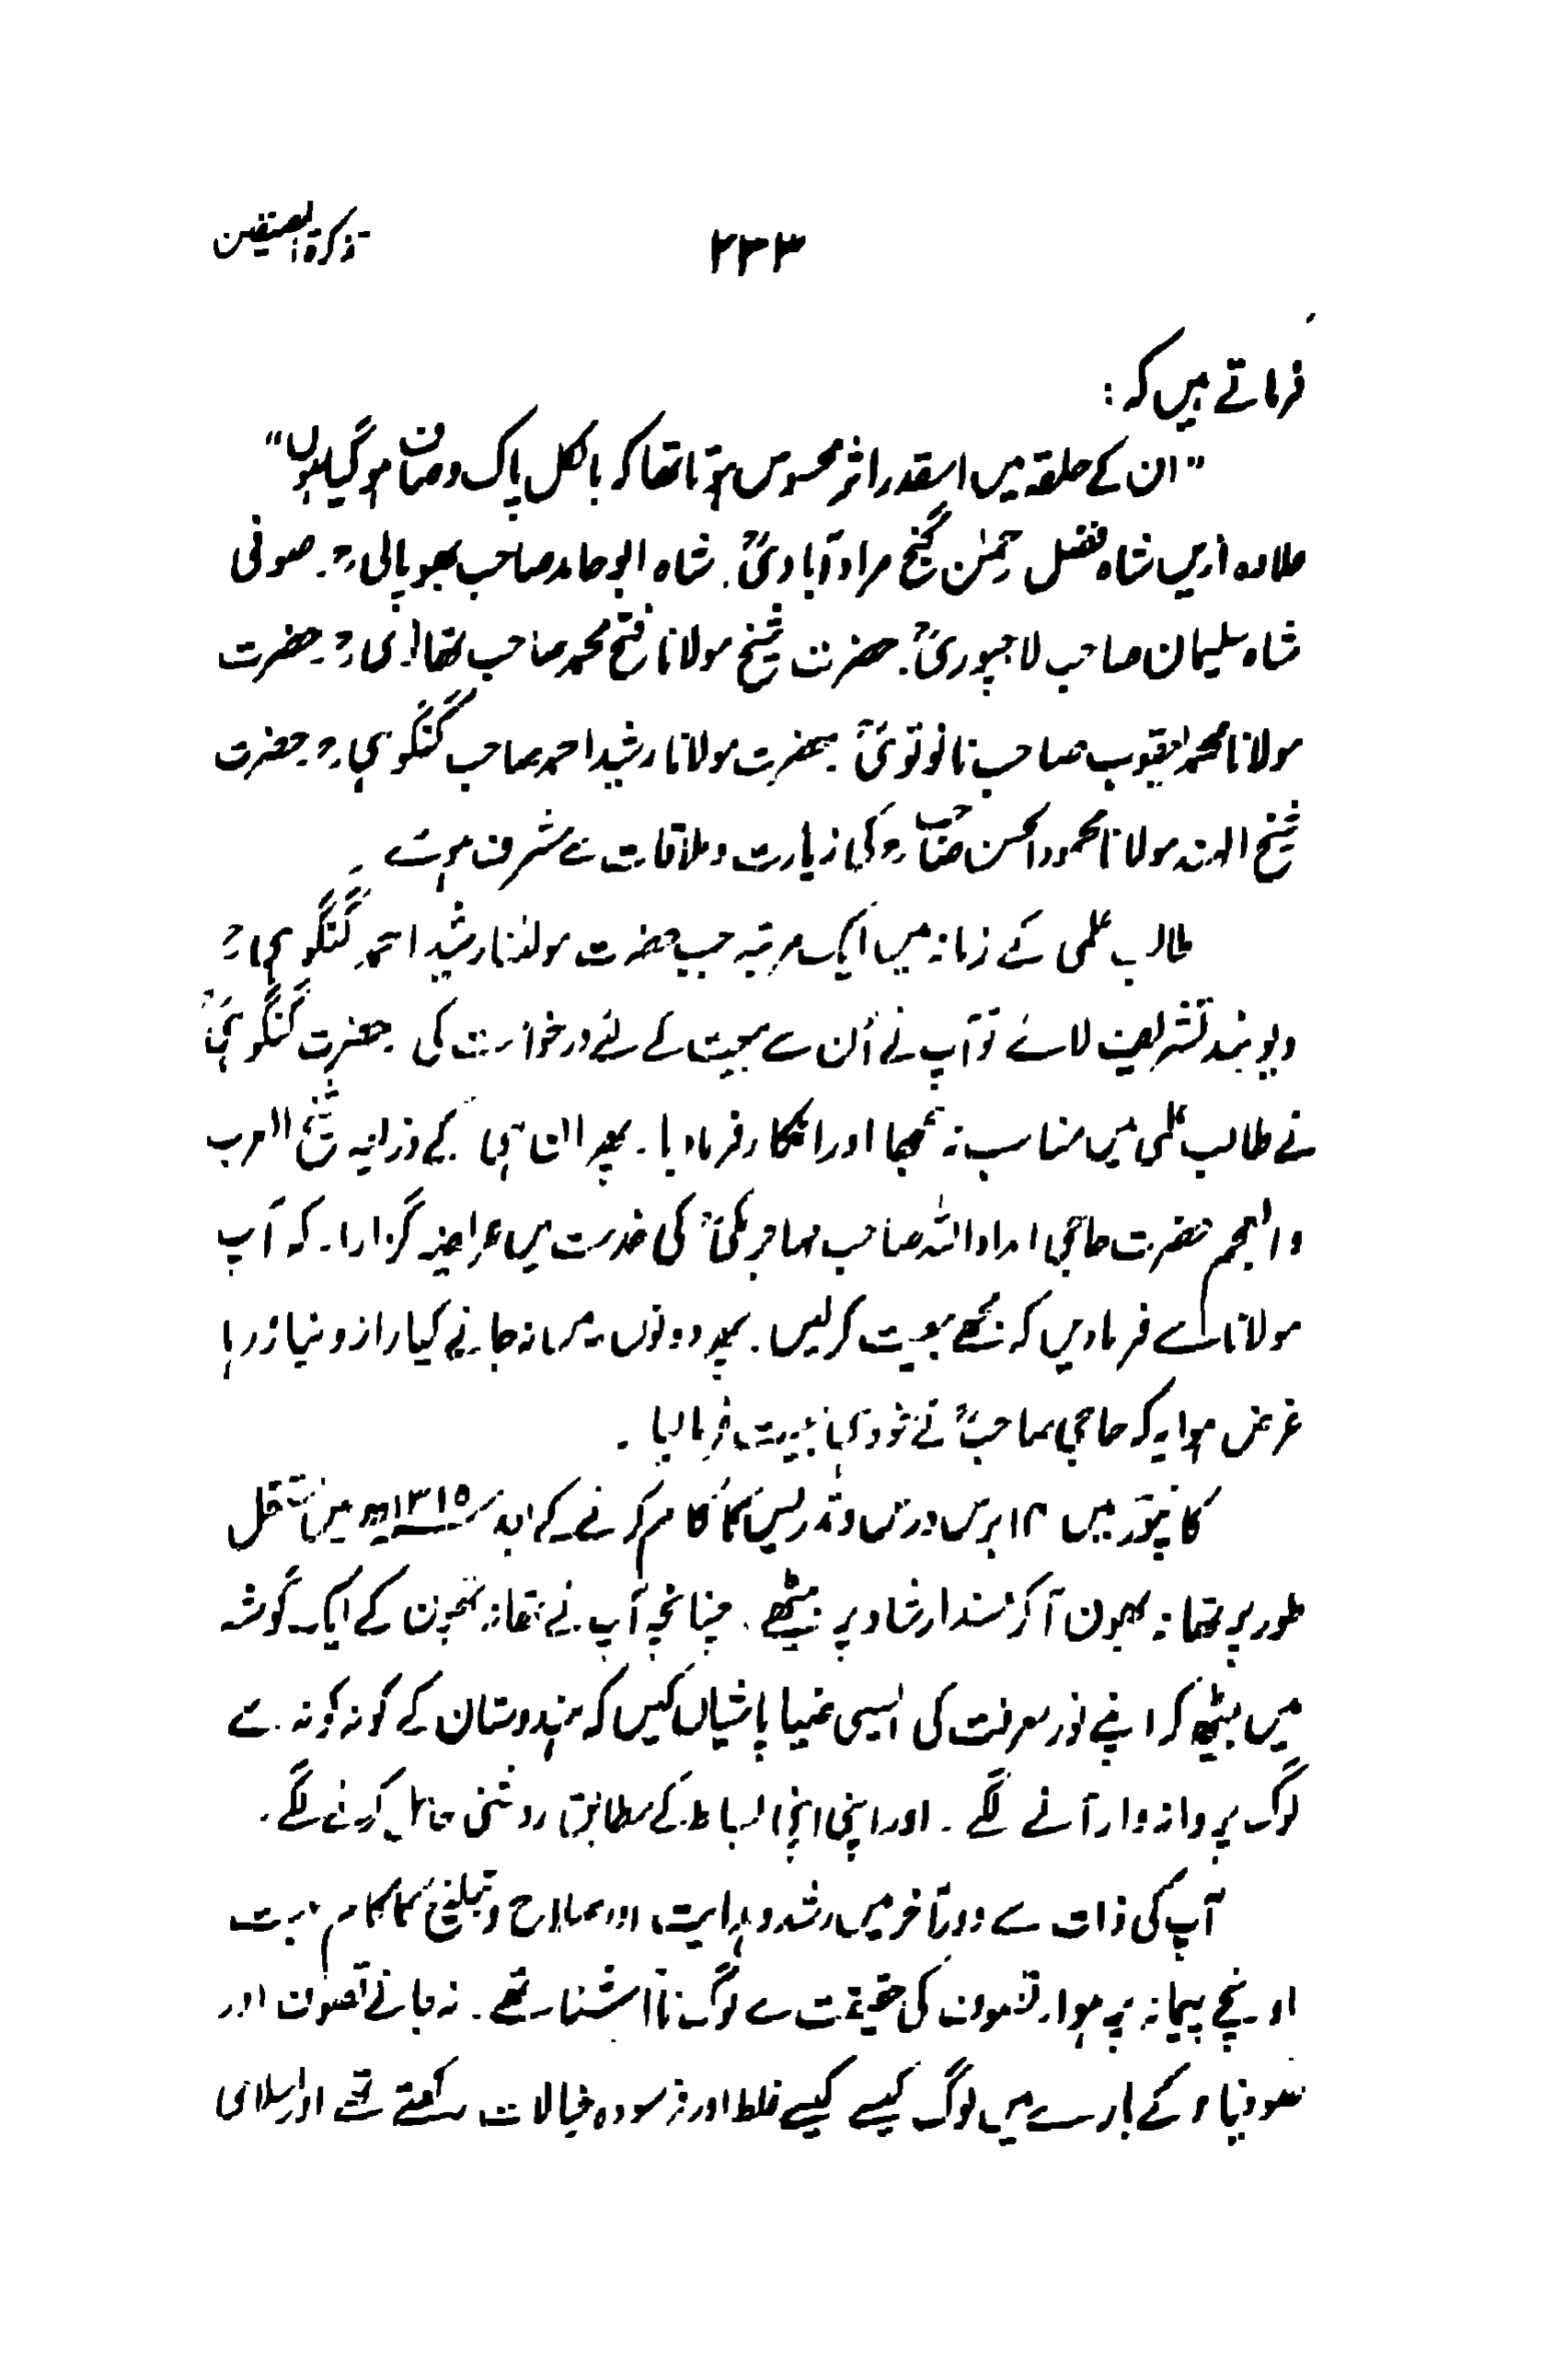 تذکرۃ المصنفین
۲۳۳
فرماتے ہیں کہ :
"ان کے حلقہ میں اسقدر اثر محسوس ہوتا تھا کہ بالکل پاک و صاف ہو گیا ہوں"
علاوہ ازیں شاہ فضل رحمٰن گنج مراد آبادیؒ، شاہ ابو حامد صاحب بھوپالیؒ۔ صوفی
شاہ سلیمان صاحب لاجپوریؒ۔ حضرت شیخ مولانا فتح محمد صاحب تھانویؒ۔ حضرت
مولانا محمد یعقوب صاحب نانوتویؒ۔ حضرت مولانا رشید احمد صاحب گنگوہیؒ۔ حضرت
شیخ الہند مولانا محمود الحسن صاحبؒ کی زیارت و ملاقات سے مشرف ہوئے۔
طالب علمی کے زمانہ میں ایک مرتبہ جب حضرت مولٰنا رشید احمد گنگوہیؒ
دیوبند تشریف لائے تو آپ نے اُن سے بیعت کے لئے درخواست کی۔ حضرت گنگوہیؒ
نے طالب علمی میں مناسب نہ سمجھا اور انکار فرما دیا۔ پھر ان ہی کے ذریعہ شیخ العرب
والعجم حضرت حاجی امداد اللہ صاحب مہاجر مکیؒ کی خدمت میں عریضہ گزارا۔ کہ آپ
مولانا سے فرما دیں کہ مجھے بیعت کر لیں۔ پھر دونوں میں نہ جانے کیا راز و نیاز رہا
غرض ہوا یہ کہ حاجی صاحبؒ نے خود ہی بیعت فرما لیا۔
کانپور میں ۱۴ برس درس و تدریس کا کام کرنے کے بعد ۱۳۱۵ھ میں مستقل
طور پر تھانہ بھون آ کر مسند ارشاد پر بیٹھے۔ چنانچہ آپ نے تھانہ بھون کے ایک گوشہ
میں بیٹھ کر اپنے نور معرفت کی ایسی ضیا پاشیاں کیں کہ ہندوستان کے کونہ کونہ سے
لوگ پروانہ وار آنے لگے۔ اور اپنی اپنی بساط کے مطابق روشنی حاصل کرنے لگے۔
آپ کی ذات سے دور آخر میں رشد و ہدایت اور صلاح و تبلیغ کا کام بہت
اونچے پیمانہ پر ہوا۔ تصوف کی حقیقت سے لوگ ناآشنا تھے۔ نہ جانے تصوف اور
صوفیاء کے بارے میں لوگ کیسے کیسے غلط اور فرسودہ خیالات رکھتے تھے اور اسلامی